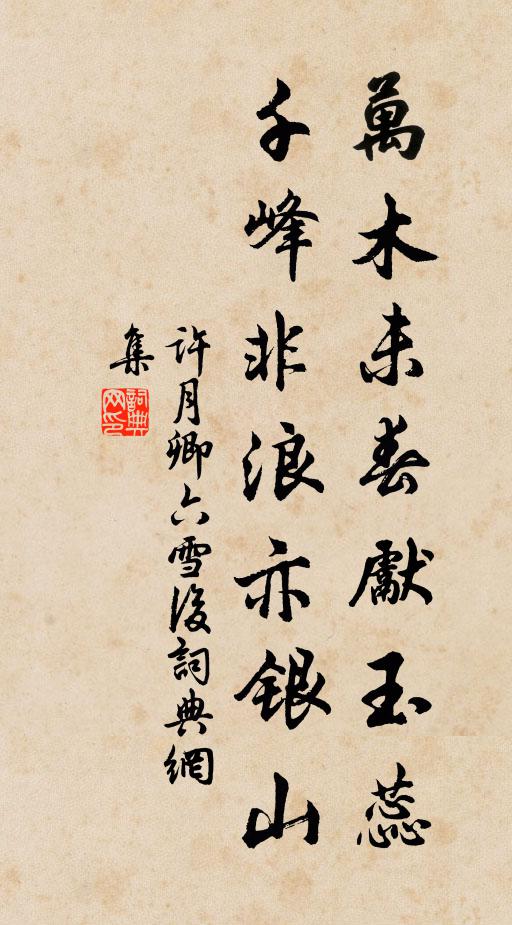 萬木未春獻玉蕊
千峰非浪亦銀山
許月卿六雪後詞典網
集
詞典
网印